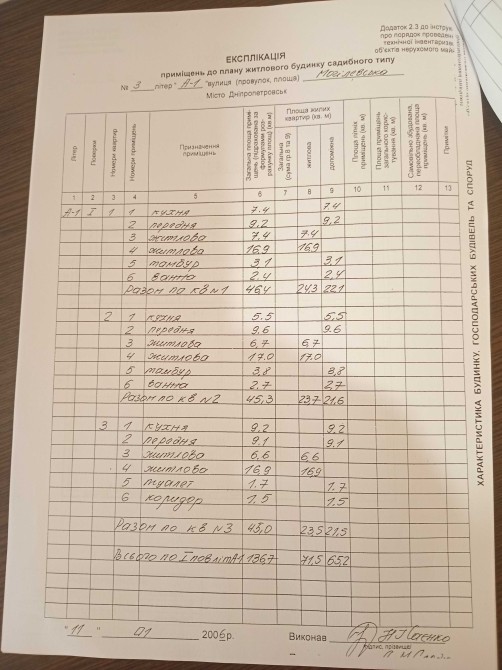 Додаток 2.3 до інструк
про порядок проведен
технічної інвентариза
об'єктів нерухомого май
ЕКСПЛІКАЦІЯ
приміщень до плану житлового будинку садибного типу
№ 3 літер "А-1" вулиця (провулок, площа) Могілевська
Місто Дніпропетровськ
Літер
Поверхи
Номери квартир
Номери приміщень
Призначення приміщень
Загальна площа приміщень (підрахована за формулами розрахунку площ) (кв м)
Площа жилих квартир (кв. м)
Загальна (сума гр.8 та 9)
житлова
допоміжна
Площа літніх приміщень (кв. м)
Площа приміщень загального користування (кв. м)
Самовільно збудована, переобладнана площа приміщень (кв. м)
Примітки
1 2 3 4 5 6 7 8 9 10 11 12 13
А-1 I 1 1 кухня 7.4 7.4
2 передня 9,2 9,2
3 житлова 7.4 7.4
4 житлова 16,9 16,9
5 тамбур 3,1 3,1
6 ванна 2,4 2,4
Разом по кв N1 46,4 24,3 22,1
2 1 кухня 5.5 5,5
2 передня 9.6 9.6
3 житлова 6,7 6,7
4 житлова 17.0 17.0
5 тамбур 3,8 3,8
6 ванна 2,7 2,7
Разом по кв N2 45,3 23,7 21,6
3 1 кухня 9.2 9.2
2 передня 9.1 9.1
3 житлова 6,6 6,6
4 житлова 16,9 16,9
5 туалет 1.7 1.7
6 коридор 1,5 1.5
Разом по кв N3 45,0 23,5 21,5
Всього по I пов літ А1 136,7 71,5 65,2
"11" 01 2006р. Виконав
підпис, прізвище
ХАРАКТЕРИСТИКА БУДИНКУ, ГОСПОДАРСЬКИХ БУДІВЕЛЬ ТА СПОРУД